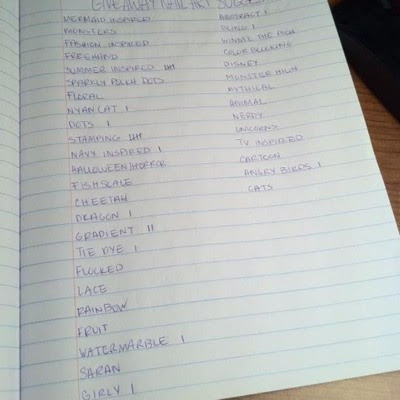 GIVEAWAY NAIL ART
MERMAID INSPIRED
MONSTERS
FASHION INSPIRED
FREEHAND
SUMMER INSPIRED IIII
SPARKLY POLKA DOTS
FLORAL
NYAN CAT I
DOTS I
STAMPING IIII
NAVY INSPIRED I
HALLOWEEN/HORROR
FISHSCALE
CHEETAH
DRAGON I
GRADIENT II
TIE DYE I
FLOCKED
LACE
RAINBOW
FRUIT
WATERMARBLE I
SARAN
GIRLY I
ABSTRACT I
BLING I
WINNIE THE POOH
COLOR BLOCKING
DISNEY
MONSTER HIGH
MYTHICAL
ANIMAL
NERDY
UNICORNS
TV INSPIRED
CARTOON
ANGRY BIRDS I
CATS